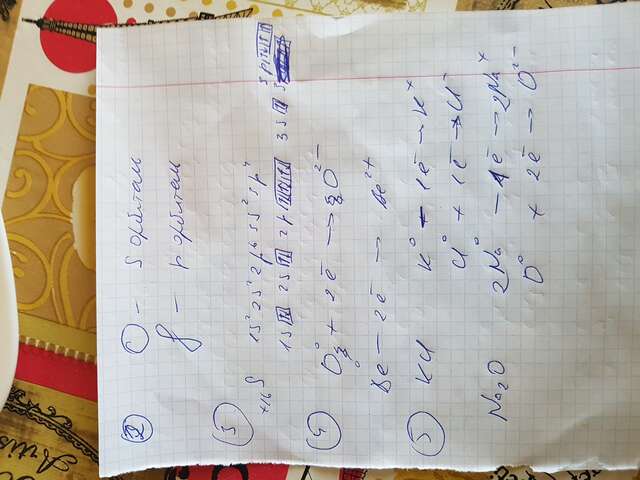 Artis
2 O – S орбиталь
8 – p орбиталь
3
+16 S 1s² 2s² 2p⁶ 3s² 3p⁴
1s ↑↓ 2s ↑↓ 2p ↑↓ ↑↓ ↑↓ 3s ↑↓ 3p ↑↓ ↑ ↑
4 O⁰ + 2ē → O²⁻
Be⁰ – 2ē → Be²⁺
5 KCl K⁰ – 1ē → K⁺
Cl⁰ + 1ē → Cl⁻
Na₂O 2Na⁰ – 1ē → 2Na⁺
O⁰ + 2ē → O²⁻